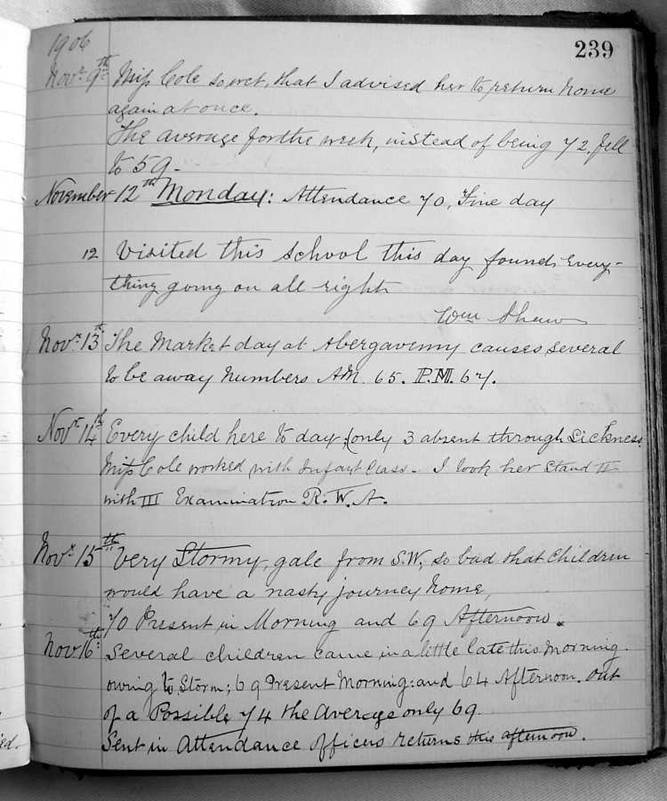 239
1906
Novr 9th Miss Cole so wet, that I advised her to return home
again at once.
The average for the week, instead of being 72, fell
to 59.
November 12th Monday: Attendance 70, Fine day
12 Visited this school this day found Every-
thing going on all right
Wm Shaw
Novr 13th The Market day at Abergavenny causes several
to be away Numbers A.M. 65. P.M. 67.
Novr 14th Every child here to day (only 3 absent through Sickness
Miss Cole worked with Infant Class. I took her Stand II
with III Examination R.W.A.
Novr 15th Very Stormy, gale from S.W, so bad that Children
would have a nasty journey home,
70 Present in Morning and 69 Afternoon.
Novr 16th Several children came in a little late this Morning.
owing to Storm; 69 Present Morning: and 64 Afternoon. Out
of a Possible 74 the Average only 69.
Sent in Attendance officers returns this afternoon.